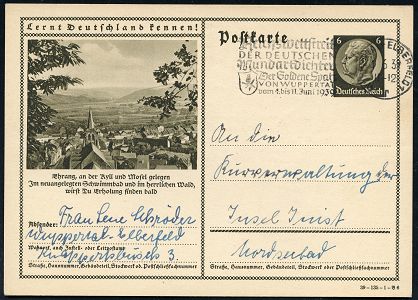 Lernt Deutschland kennen!
Ehrang, an der Kyll und Mosel gelegen
Im neuangelegten Schwimmbad und im herrlichen Wald,
wirst Du Erholung finden bald
Absender: Frau Lene Schröder
Wuppertal-Elberfeld
Wohnort, auch Zustell- oder Leitpostamt
3.
Straße, Hausnummer, Gebäudeteil, Stockwerk od. Postschließfachnummer
Postkarte
Reichswettstreit
DER DEUTSCHEN
Mundartdichter
Der Goldene Spatz
VON WUPPERTAL
vom 4. bis 11. Juni 1939
ELBERFELD
6 6
Deutsches Reich
An die
Kurverwaltung der
Insel Juist
Nordseebad
Straße, Hausnummer, Gebäudeteil, Stockwerk oder Postschließfachnummer
39-135-1-B6